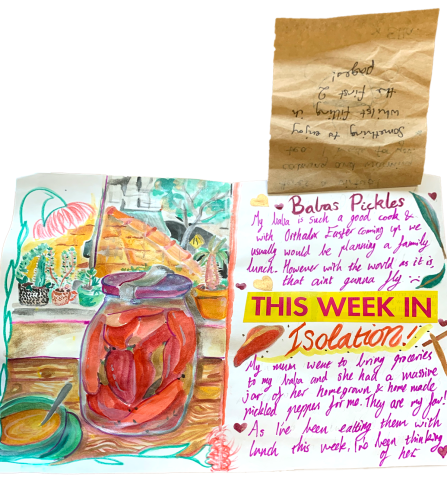 Something to enjoy
whilst filling in
the first 2
pages!
Babas Pickles
My baba is such a good cook &
with Orthadox Easter coming up we
usually would be planning a family
lunch. However with the world as it is,
that aint gunna fly :-(
THIS WEEK IN
Isolation!
My mum went to bring groceries
to my baba and she had a massive
jar of her homegrown & home made
pickled pepper for me. They are my fav!
As I've been eating them with
lunch this week, I've been thinking
of her